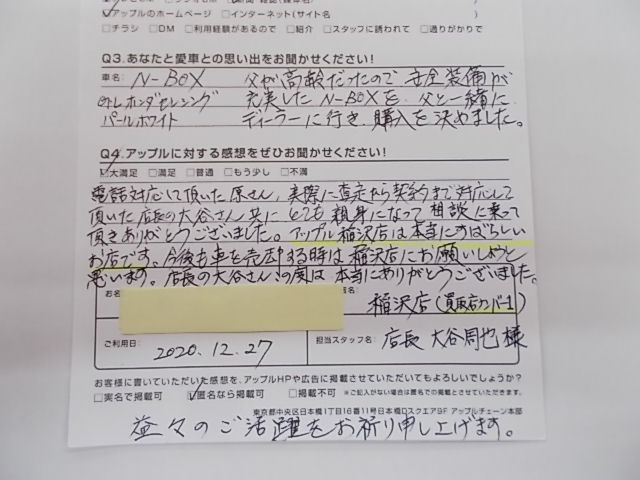 ✓アップルのホームページ □インターネット(サイト名 )
□チラシ □DM □利用経験があるので □紹介 □スタッフに誘われて □通りがかりで
Q3.あなたと愛車との思い出をお聞かせください!
車名: N-BOX 父が高齢だったので 安全装備が
ホンダセンシング 充実した N-BOXを、父と一緒に
パールホワイト ディーラーに行き 購入を決めました。
Q4.アップルに対する感想をぜひお聞かせください!
✓大満足 □満足 □普通 □もう少し □不満
電話対応して頂いた原さん、実際に査定から契約まで対応して
頂いた店長の大谷さん 共に とても 親身になって 相談に乗って
頂きありがとうございました。アップル稲沢店は本当にすばらしい
お店です。今後も車を売却する時は 稲沢店にお願いしようと
思います。店長の大谷さん、この度は 本当にありがとうございました。
お名
稲沢店(買取店ナンバー1)
ご利用日: 2020.12.27
担当スタッフ名: 店長 大谷周也 様
お客様に書いていただいた感想を、アップルHPや広告に掲載させていただいてもよろしいでしょうか?
□実名で掲載可 ✓匿名なら掲載可 □掲載不可 ※ご記入がない場合は匿名での掲載とさせていただきます。
東京都中央区日本橋1丁目16番11号日本橋Dスクエア9F アップルチェーン本部
益々のご活躍をお祈り申し上げます。